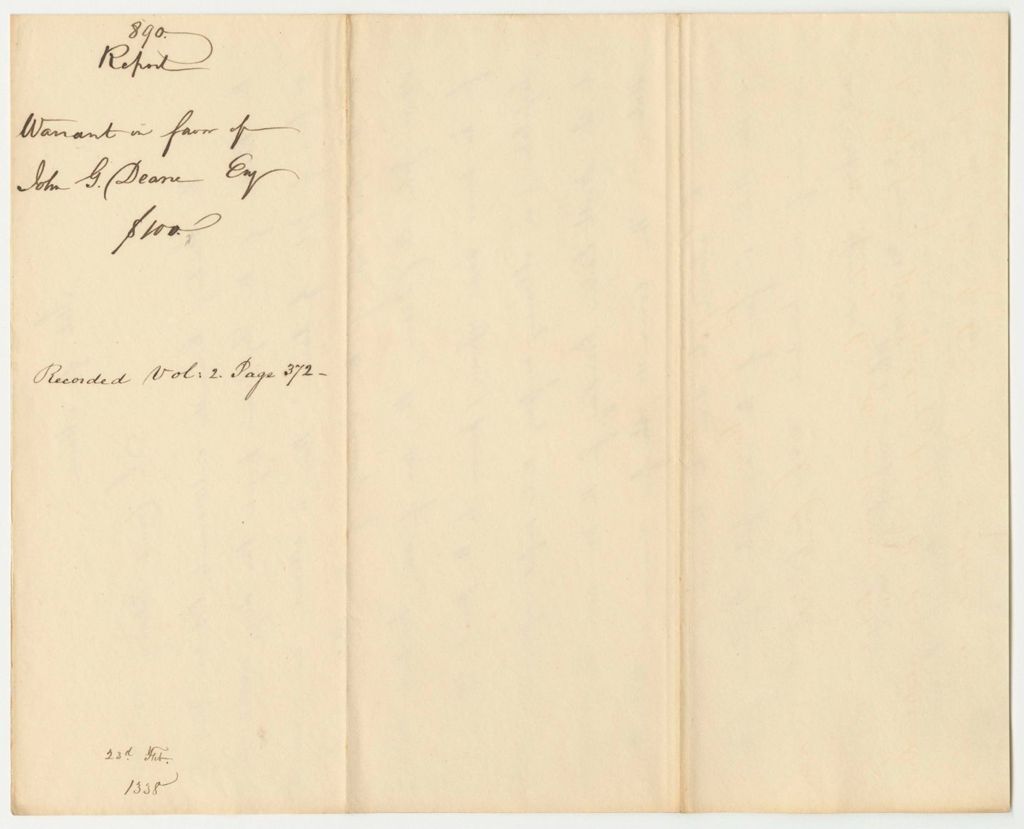 890.
Report
Warrant in favor of
John G. Deane Esq
$100.
Recorded Vol: 2. Page 372-
23d Feb.
1838